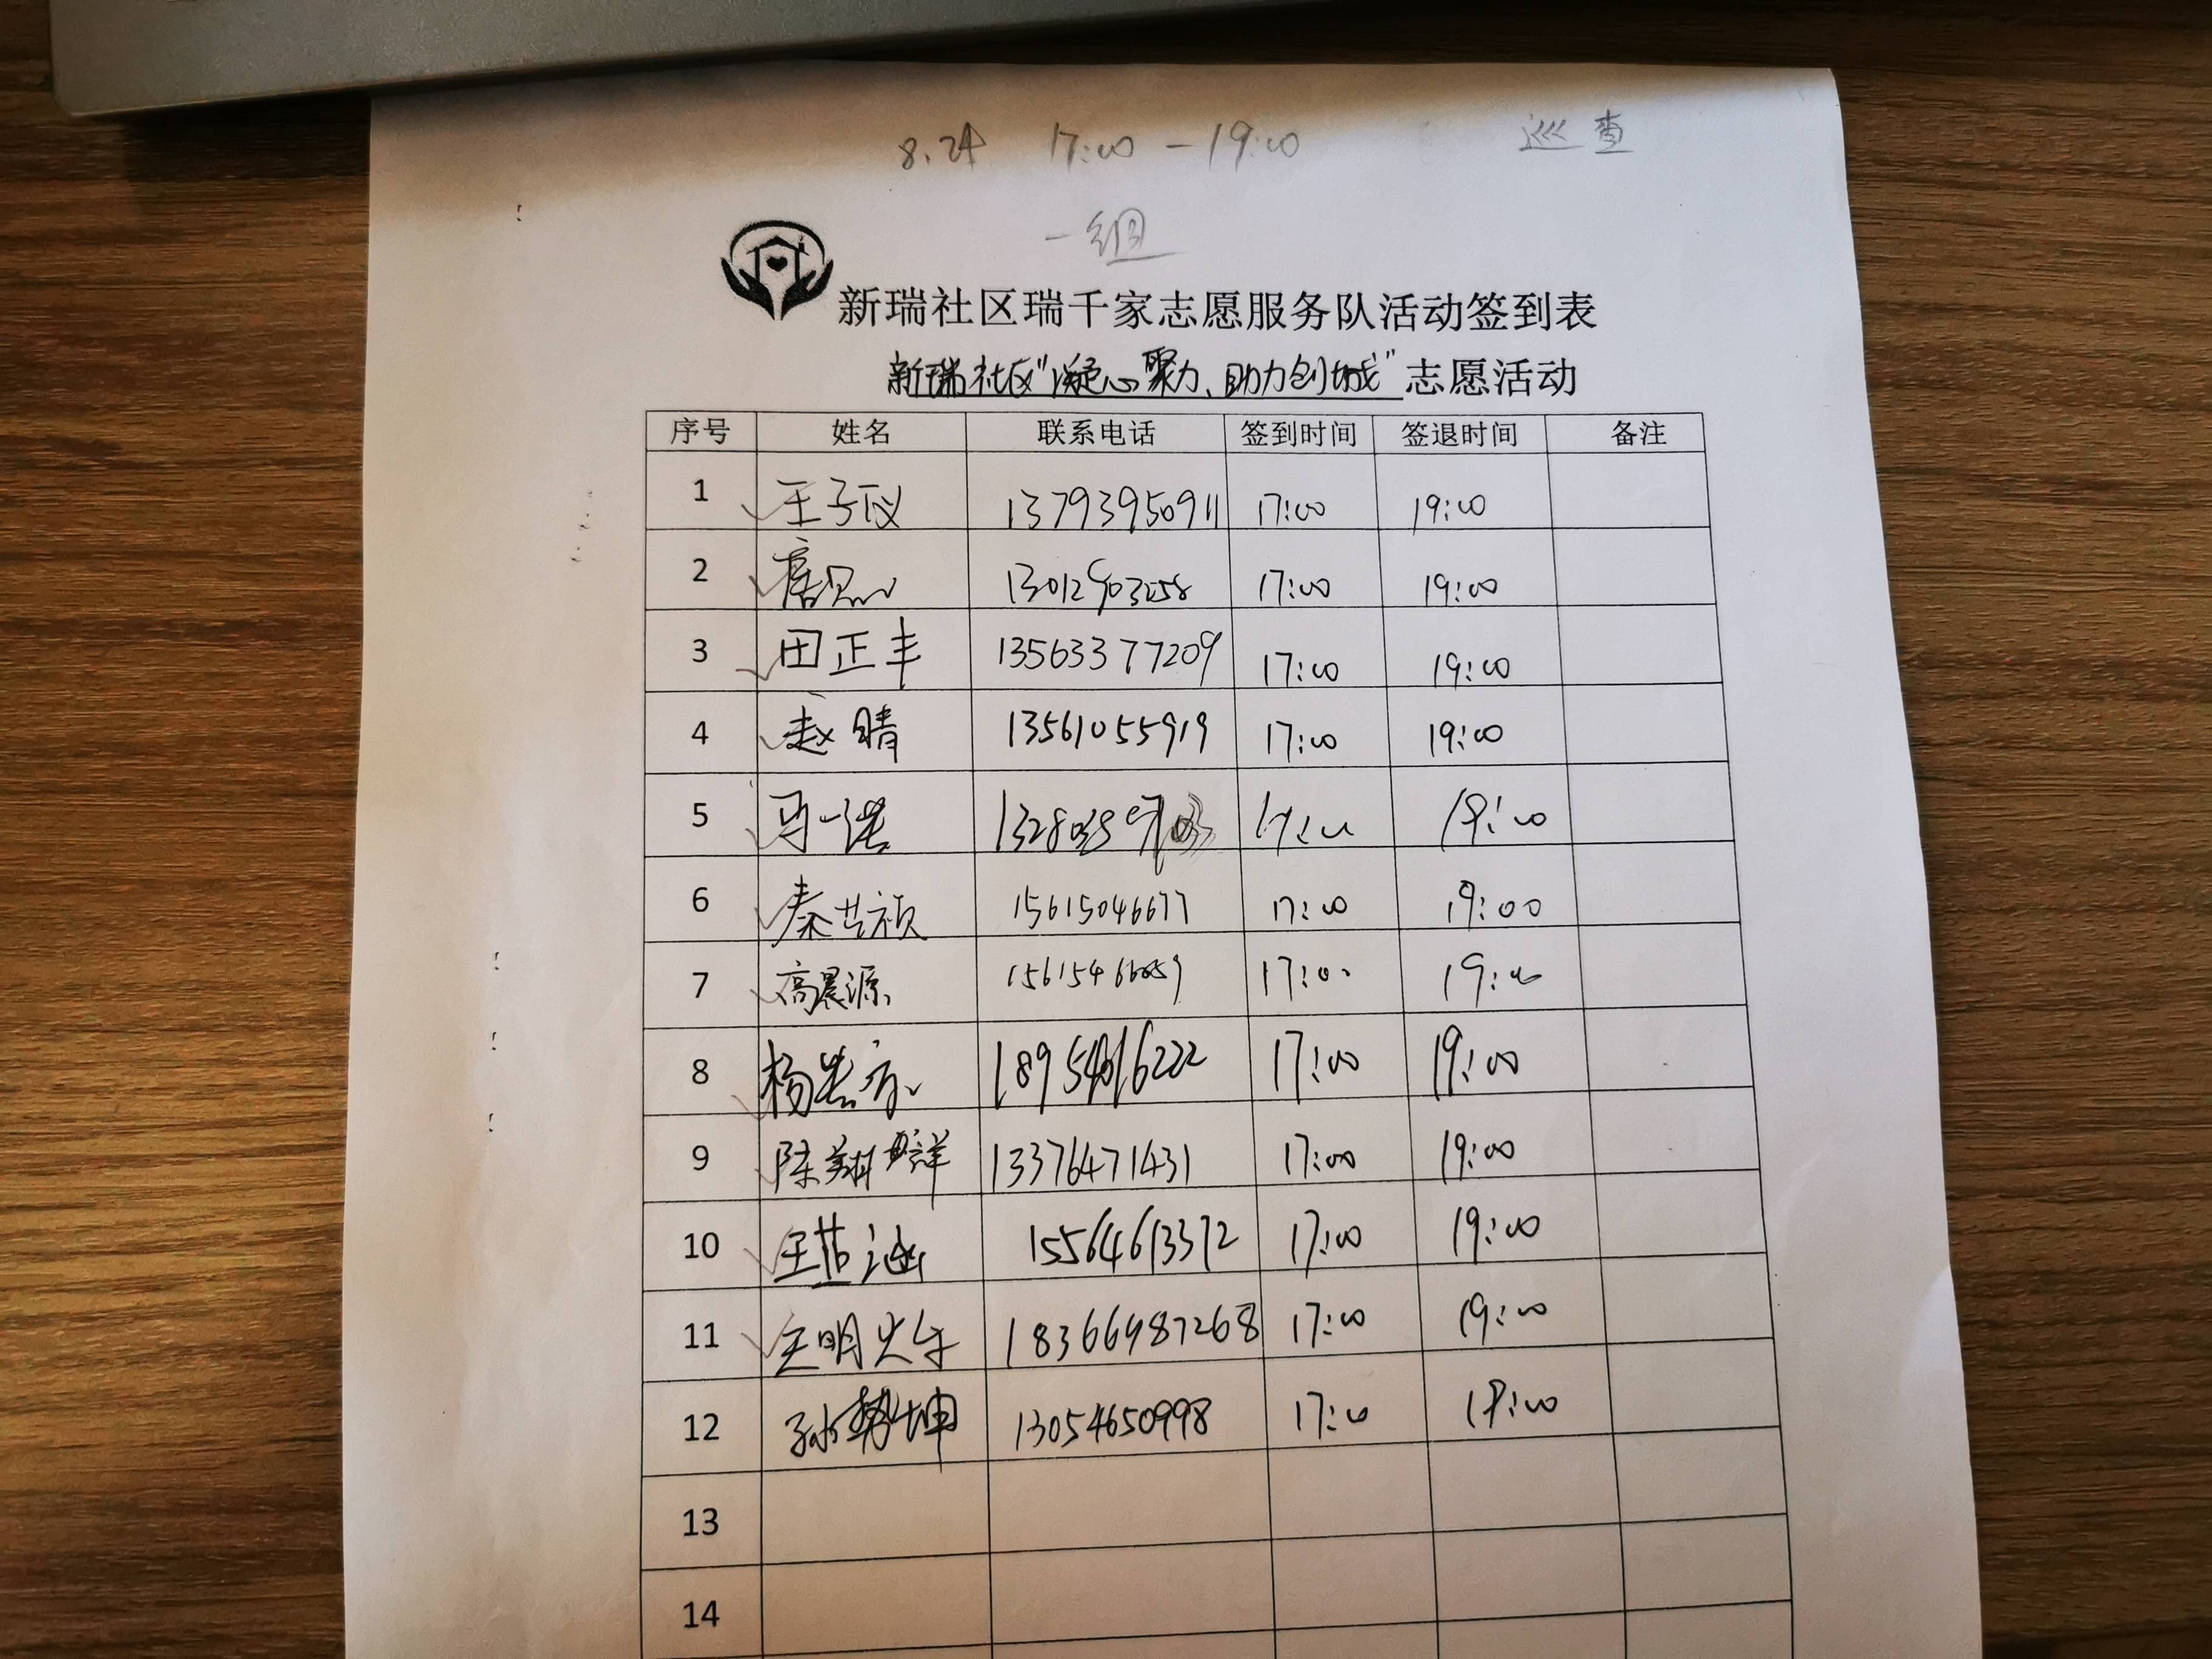 8.24 17:00-19:00 巡查
一组
新瑞社区瑞千家志愿服务队活动签到表
新瑞社区"凝心聚力、助力创城"志愿活动
序号 姓名 联系电话 签到时间 签退时间 备注
1 王子仪 13793950911 17:00 19:00
2 唐 17:00 19:00
3 田正丰 13563377209 17:00 19:00
4 赵晴 13561055919 17:00 19:00
5 马一浩 19:00
6 秦艺祯 15615046677 17:00 19:00
7 高晨源 17:00 19:00
8 杨 17:00 19:00
9 陈翔 13376471431 17:00 19:00
10 王茁涵 15564613372 17:00 19:00
11 18366987268 17:00 19:00
12 孙 坤 13054650998 17:00 19:00
13
14